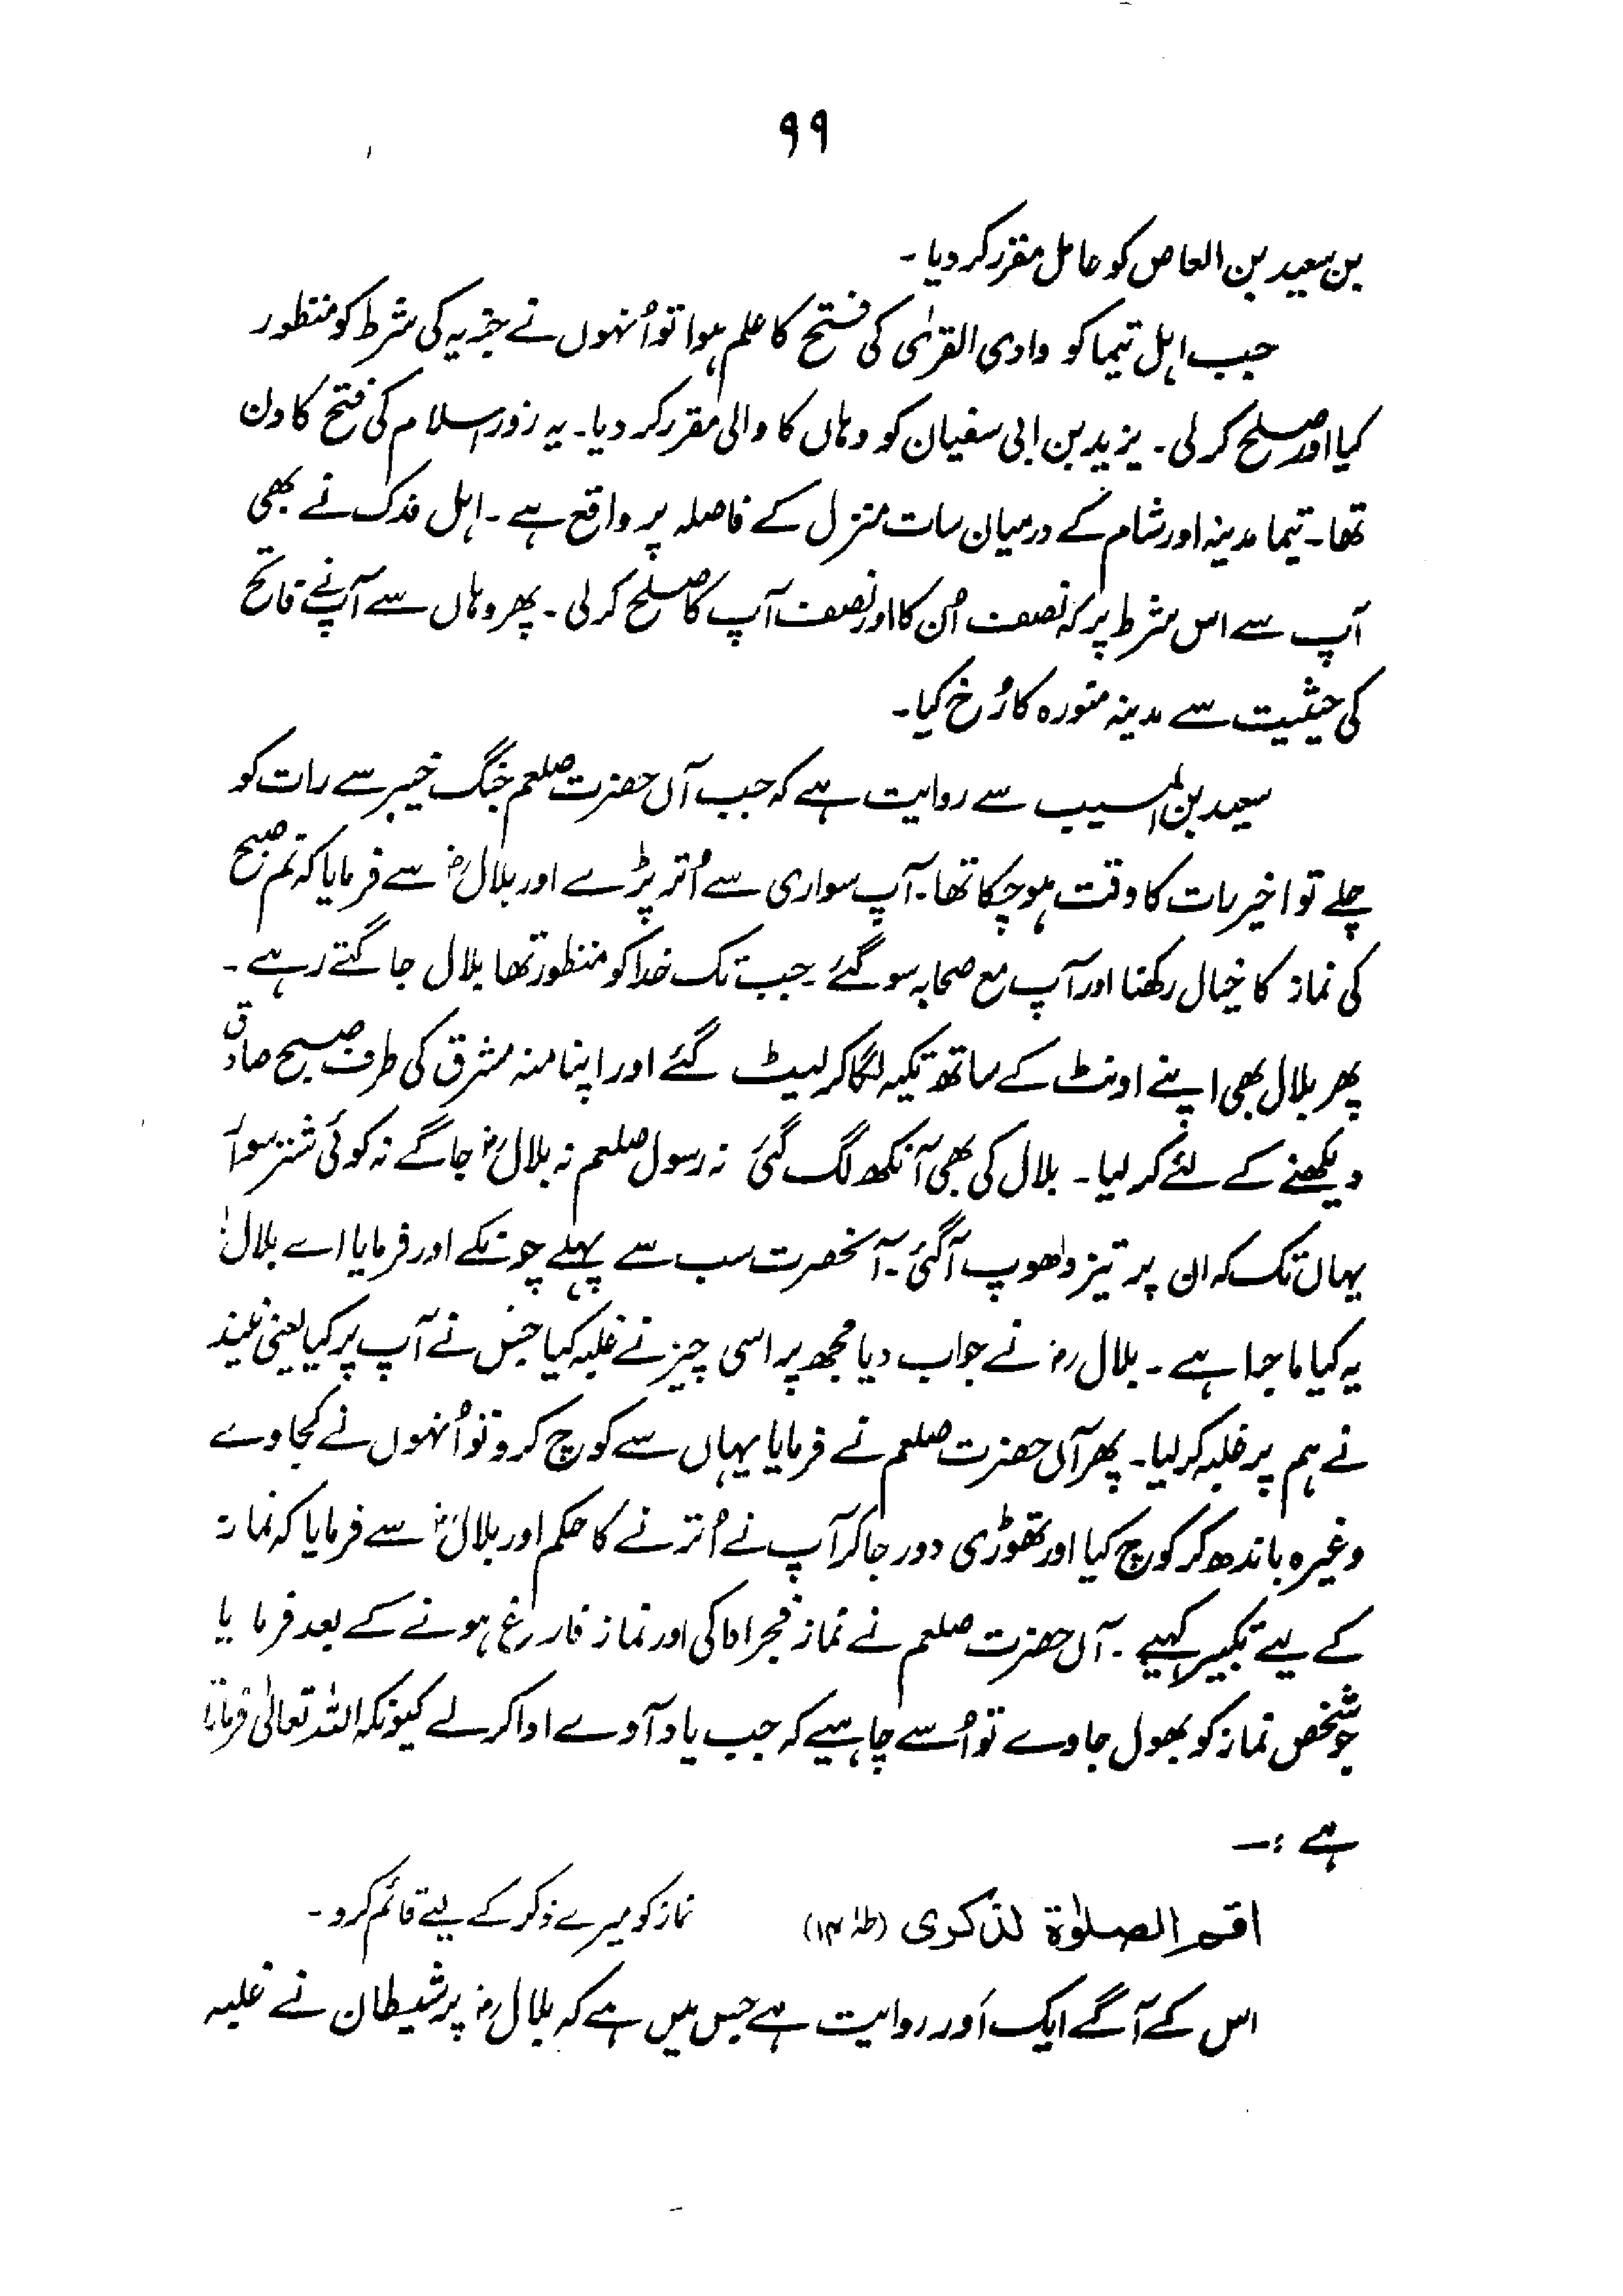 ۹۹
بن سعید بن العاص کو عامل مقرر کر دیا۔
جب اہل تیما کو وادی القریٰ کی فتح کا علم ہوا تو اُنہوں نے جزیہ کی شرط کو منظور
کیا اور صلح کر لی۔ یزید بن ابی سفیان کو وہاں کا والی مقرر کر دیا۔ یہ روز اسلام کی فتح کا دن
تھا۔ تیما مدینہ اور شام کے درمیان سات منزل کے فاصلہ پر واقع ہے۔ اہل فدک نے بھی
آپ سے اس شرط پر کہ نصف اُن کا اور نصف آپ کا صلح کر لی۔ پھر وہاں سے آپ نے فاتح
کی حیثیت سے مدینہ منورہ کا رُخ کیا۔
سعید بن المسیب سے روایت ہے کہ جب آں حضرت صلعم جنگ خیبر سے رات کو
چلے تو اخیر رات کا وقت ہو چکا تھا۔ آپ سواری سے اُتر پڑے اور بلالؓ سے فرمایا کہ تم صبح
کی نماز کا خیال رکھنا اور آپ مع صحابہ سو گئے۔ جب تک خدا کو منظور تھا بلال جاگتے رہے۔
پھر بلال بھی اپنے اونٹ کے ساتھ تکیہ لگا کر لیٹ گئے اور اپنا منہ مشرق کی طرف صبح صادق
دیکھنے کے لئے کر لیا۔ بلال کی بھی آنکھ لگ گئی نہ رسول صلعم نہ بلالؓ جاگے نہ کوئی شتر سوار
یہاں تک کہ ان پر تیز دھوپ آگئی۔ آنحضرت سب سے پہلے چونکے اور فرمایا اے بلالؓ
یہ کیا ماجرا ہے۔ بلال رض نے جواب دیا مجھ پر اسی چیز نے غلبہ کیا جس نے آپ پر کیا یعنی نیند
نے ہم پر غلبہ کر لیا۔ پھر آں حضرت صلعم نے فرمایا یہاں سے کوچ کرو تو اُنہوں نے کجاوے
وغیرہ باندھ کر کوچ کیا اور تھوڑی دور جا کر آپ نے اُترنے کا حکم اور بلالؓ سے فرمایا کہ نماز
کے لیے تکبیر کہیے۔ آں حضرت صلعم نے نماز فجر ادا کی اور نماز فارغ ہونے کے بعد فرمایا
جو شخص نماز کو بھول جاوے تو اُسے چاہیے کہ جب یاد آوے ادا کر لے کیونکہ اللہ تعالیٰ فرماتا
ہے :—
اقم الصلوٰۃ لذکری (طہٰ ۱۴) نماز کو میرے ذکر کے لیے قائم کرو۔
اس کے آگے ایک اَور روایت ہے جس میں ہے کہ بلال رض پر شیطان نے غلبہ